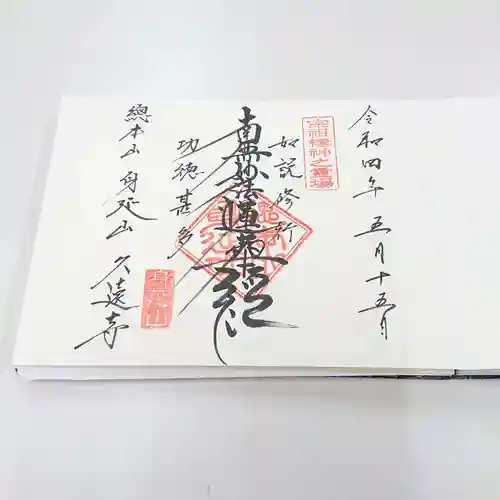 令和四年 五月十五月
宗祖棲神之霊場
如説修行
南無妙法蓮華経
功徳甚多
總本山 身延山 久遠寺
身延山